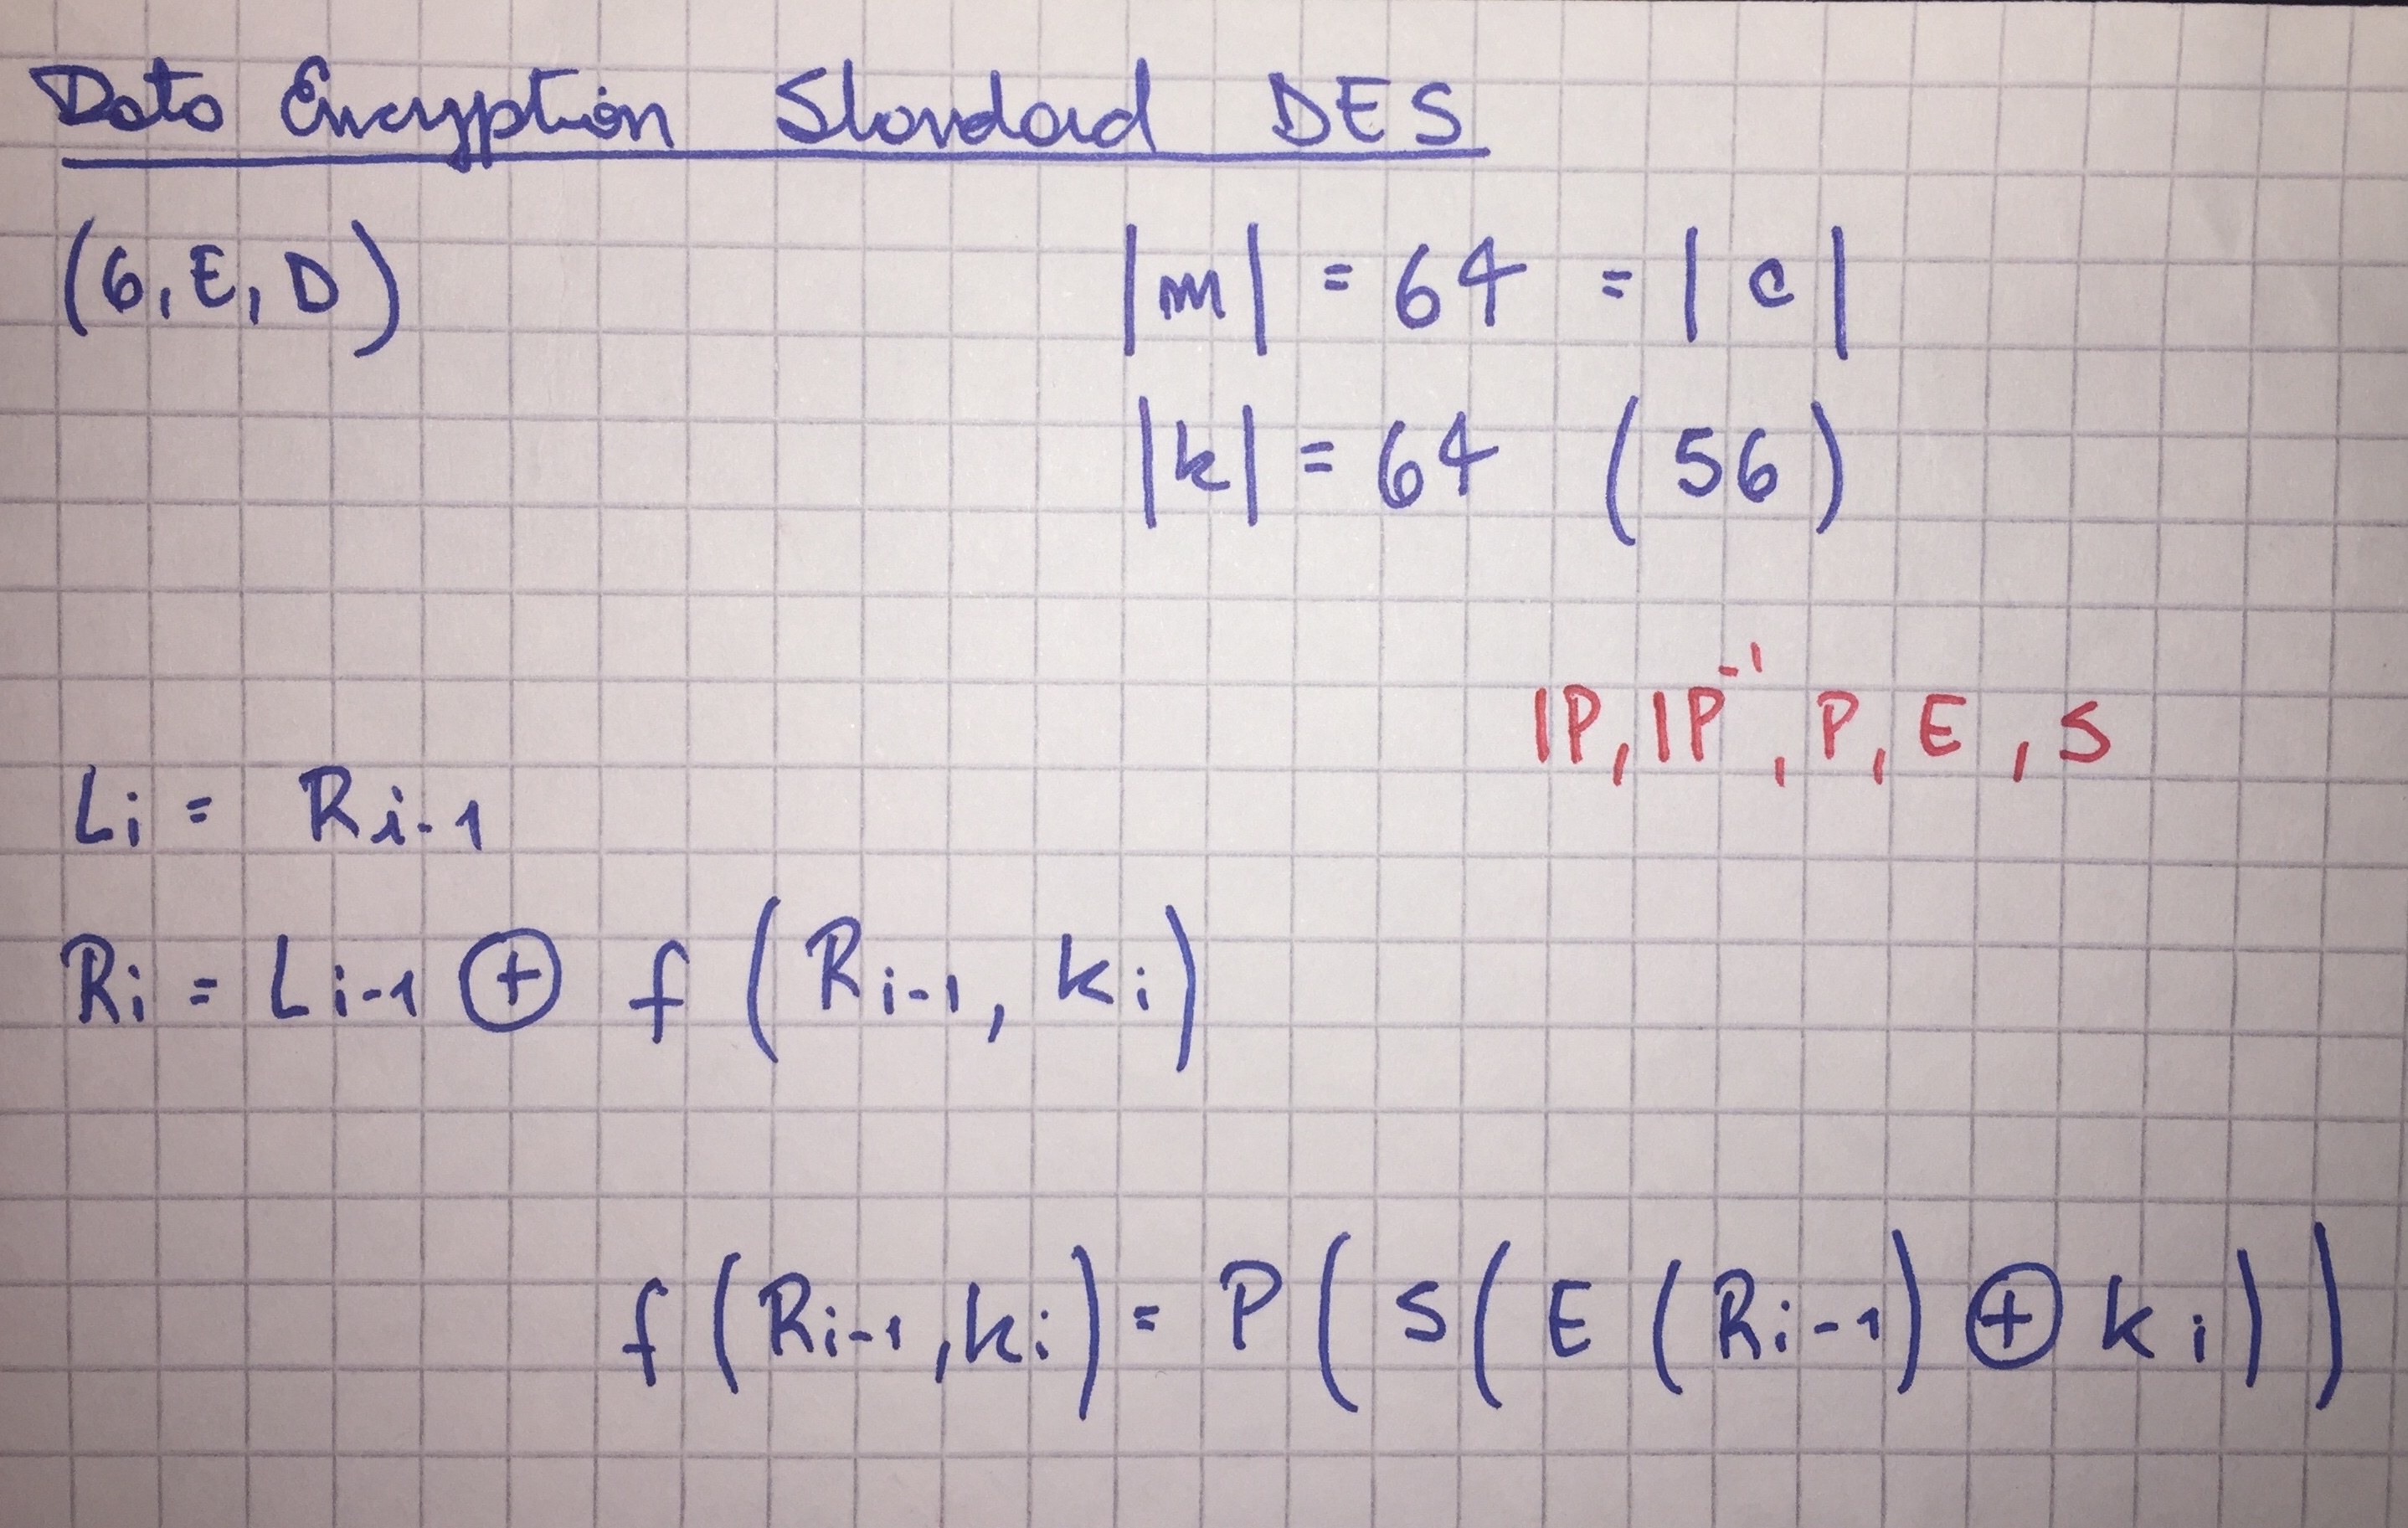 Data Encryption Standard DES
(G, E, D)
|m| = 64 = |c|
|k| = 64 (56)
IP, IP⁻¹, P, E, S
Li = Ri-1
Ri = Li-1 ⊕ f(Ri-1, ki)
f(Ri-1, ki) = P(S(E(Ri-1) ⊕ ki))